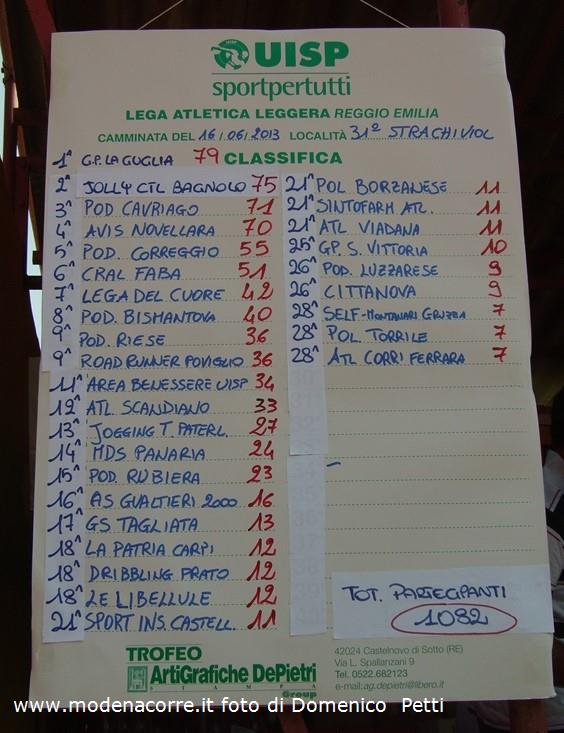 UISP
sportpertutti
LEGA ATLETICA LEGGERA REGGIO EMILIA
CAMMINATA DEL 16/06/2013 LOCALITÀ 31ª STRACHIVIOL
1ª G.P. LA GUGLIA 79 CLASSIFICA
2ª JOLLY CTL BAGNOLO 75
3ª POD CAVRIAGO 71
4ª AVIS NOVELLARA 70
5ª POD. CORREGGIO 55
6ª CRAL FABA 51
7ª LEGA DEL CUORE 42
8ª POD. BISMANTOVA 40
9ª POD. RIESE 36
9ª ROAD RUNNER POVIGLIO 36
11ª AREA BENESSERE UISP 34
12ª ATL SCANDIANO 33
13ª JOGGING T. PATERL. 27
14ª MDS PANARIA 24
15ª POD. RUBIERA 23
16ª AS GUALTIERI 2000 16
17ª GS TAGLIATA 13
18ª LA PATRIA CARPI 12
18ª DRIBBLING PRATO 12
18ª LE LIBELLULE 12
21ª SPORT INS. CASTELL. 11
21ª POL BORZANESE 11
21ª SINTOFARM ATL. 11
21ª ATL VIADANA 11
25ª GP. S. VITTORIA 10
26ª POD. LUZZARESE 9
26ª CITTANOVA 9
28ª SELF-MONTANARI GRUZZA 7
28ª POL. TORRILE 7
28ª ATL CORRI FERRARA 7
TOT. PARTECIPANTI
1082
TROFEO
ArtiGrafiche DePietri
STAMPA
Group
42024 Castelnovo di Sotto (RE)
Via L. Spallanzani 9
Tel. 0522.682123
e-mail:ag.depietri@libero.it
www.modenacorre.it foto di Domenico Petti